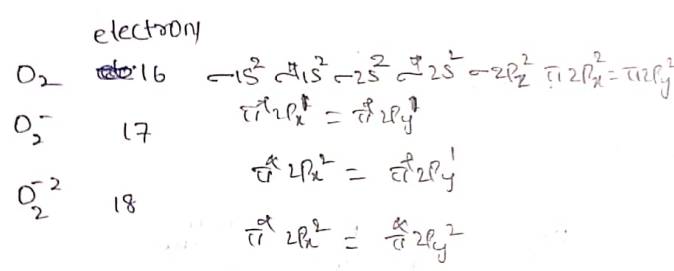 electrony
O₂ 16 σ1s² σ*1s² σ2s² σ*2s² σ2Pz² π2Px² = π2Py²
π*2Px¹ = π*2Py¹
O₂⁻ 17
π*2Px² = π*2Py¹
O₂⁻² 18
π*2Px² = π*2Py²